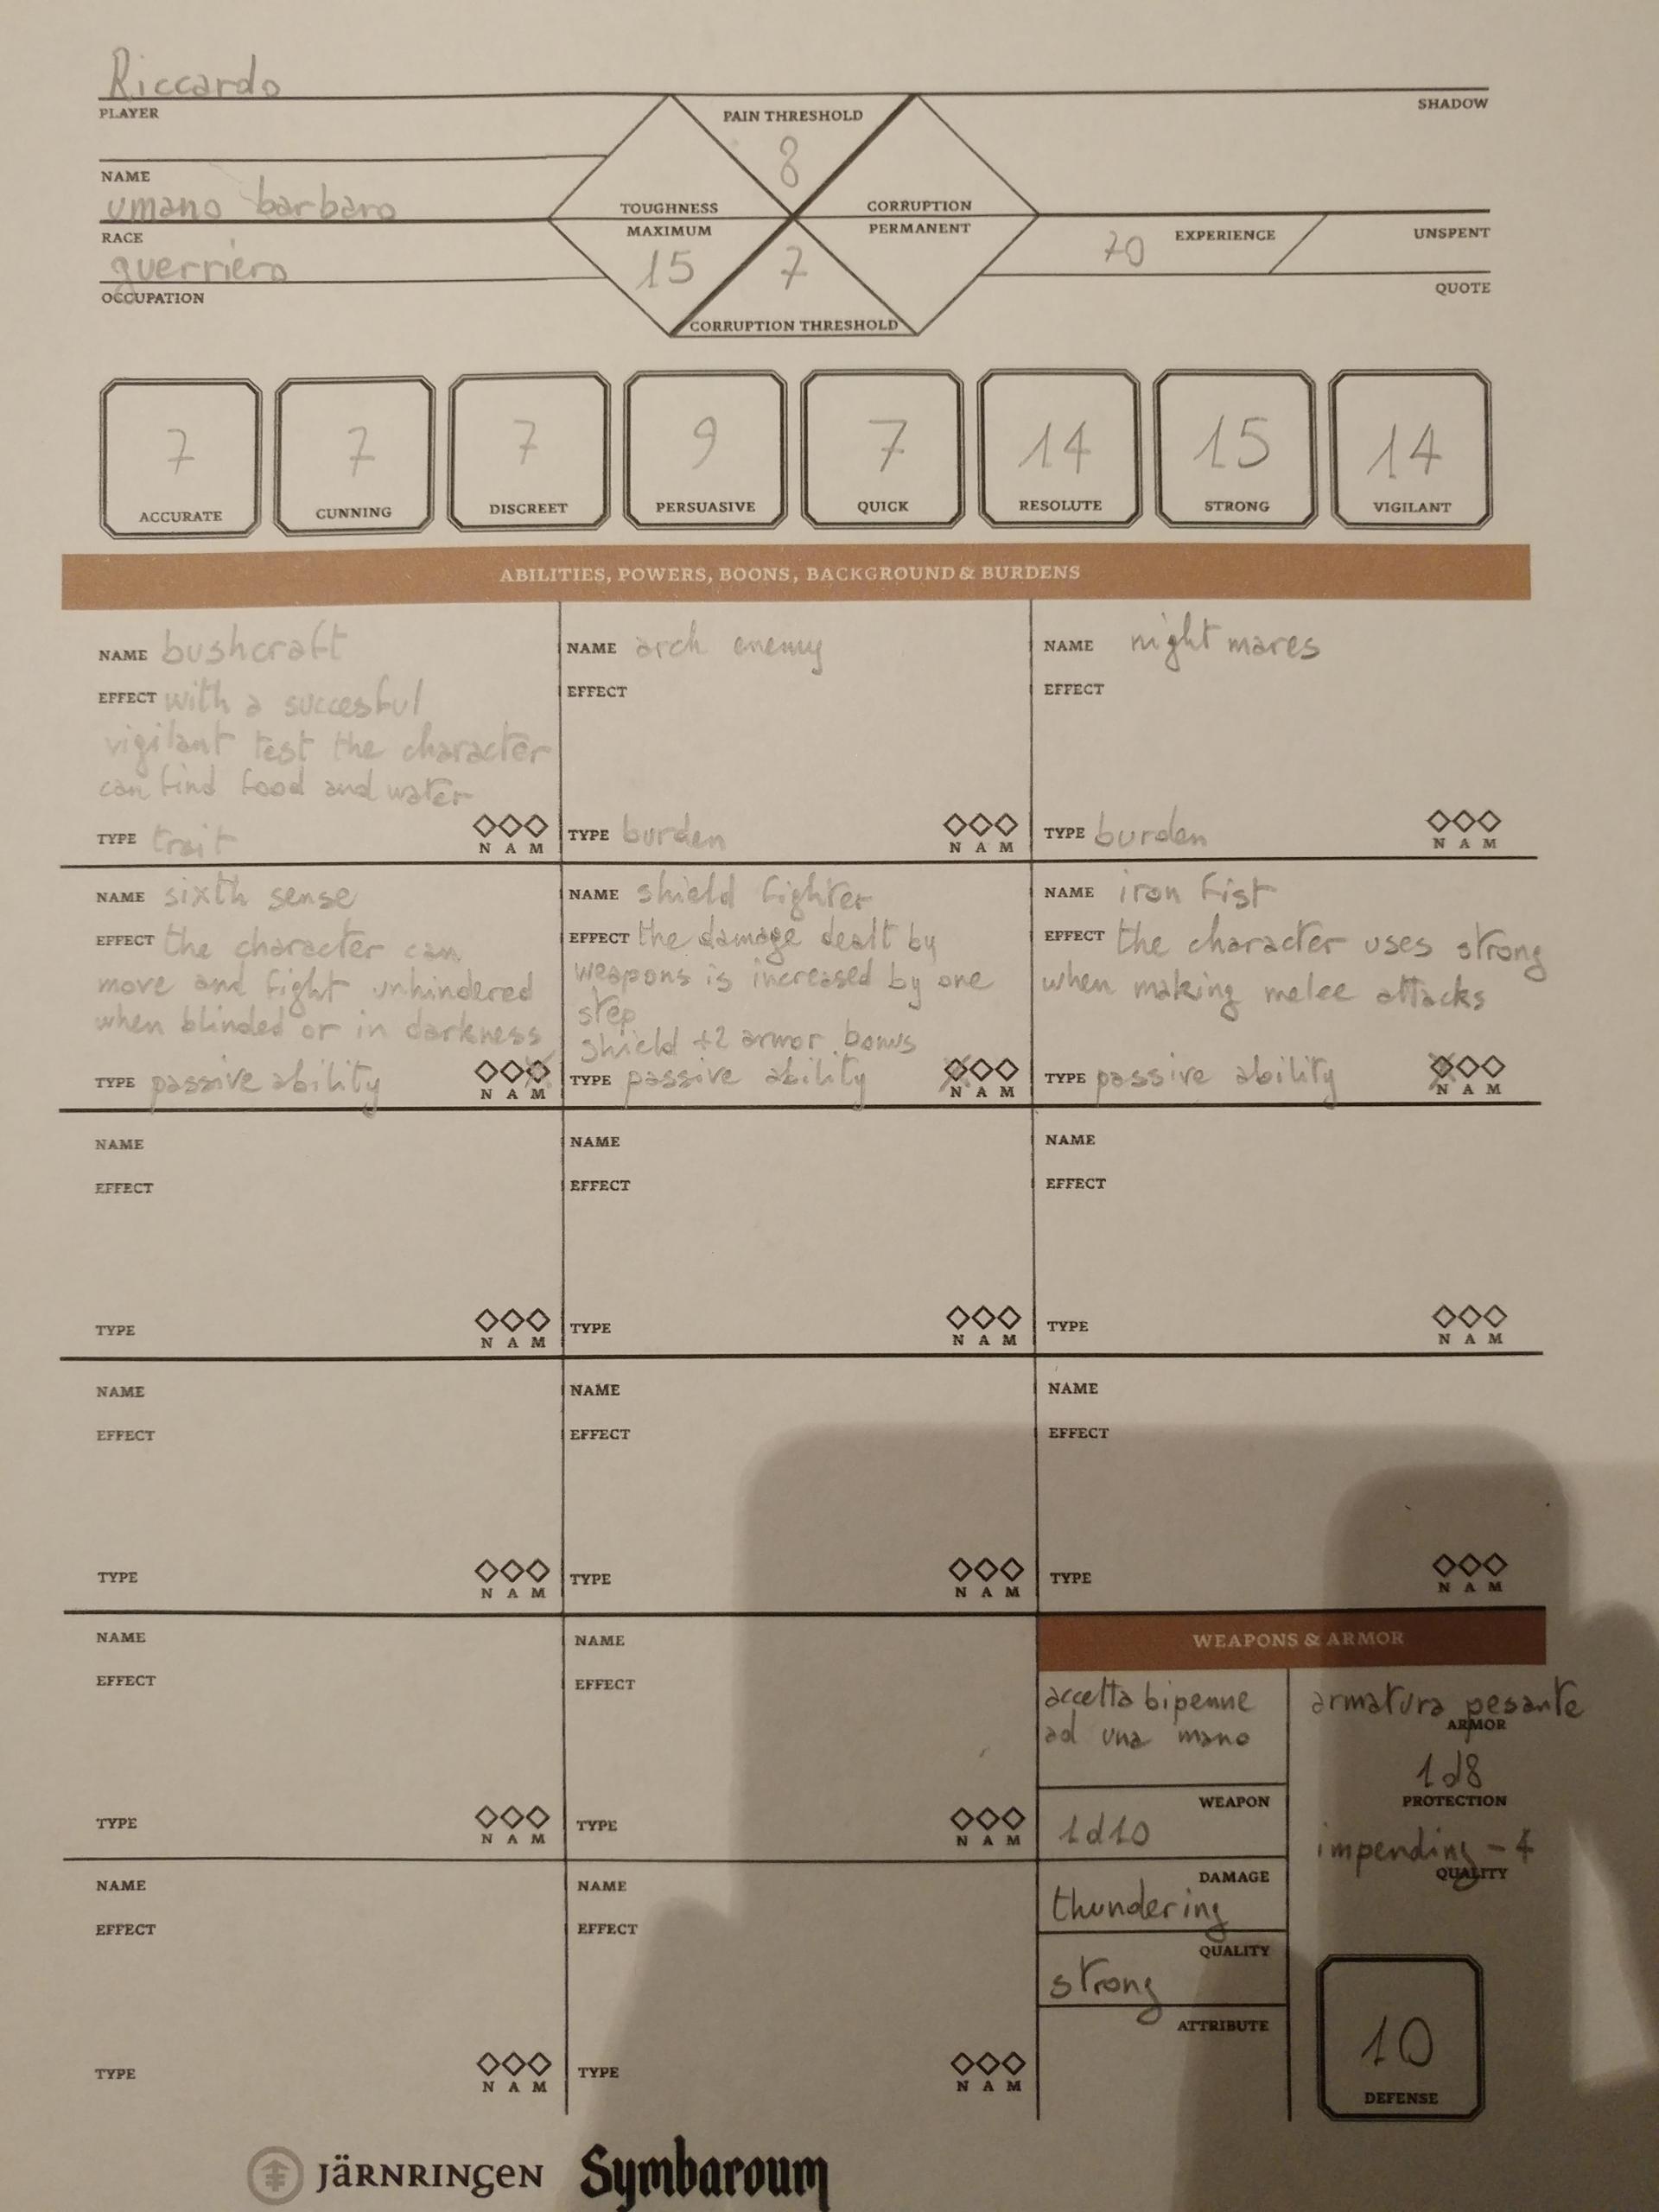 Riccardo
PLAYER
PAIN THRESHOLD
SHADOW
8
NAME
umano barbaro
TOUGHNESS
CORRUPTION
RACE
MAXIMUM
PERMANENT
70 EXPERIENCE
UNSPENT
guerriero
15
7
OCCUPATION
QUOTE
CORRUPTION THRESHOLD
7 7 7 9 7 14 15 14
ACCURATE CUNNING DISCREET PERSUASIVE QUICK RESOLUTE STRONG VIGILANT
ABILITIES, POWERS, BOONS, BACKGROUND & BURDENS
NAME bushcraft
EFFECT with a succesful
vigilant test the character
can find food and water
TYPE trait
N A M
NAME arch enemy
EFFECT
TYPE burden
N A M
NAME nightmares
EFFECT
TYPE burden
N A M
NAME sixth sense
EFFECT the character can
move and fight unhindered
when blinded or in darkness
TYPE passive ability
N A M
NAME shield fighter
EFFECT the damage dealt by
weapons is increased by one
step
shield +2 armor bonus
TYPE passive ability
N A M
NAME iron fist
EFFECT the character uses strong
when making melee attacks
TYPE passive ability
N A M
NAME
EFFECT
TYPE
N A M
NAME
EFFECT
TYPE
N A M
NAME
EFFECT
TYPE
N A M
NAME
EFFECT
TYPE
N A M
NAME
EFFECT
TYPE
N A M
NAME
EFFECT
TYPE
N A M
NAME
EFFECT
TYPE
N A M
NAME
EFFECT
TYPE
N A M
WEAPONS & ARMOR
accetta bipenne
ad una mano
WEAPON
1d10
DAMAGE
thundering
QUALITY
strong
ATTRIBUTE
armatura pesante
ARMOR
1d8
PROTECTION
impending -4
QUALITY
10
DEFENSE
NAME
EFFECT
TYPE
N A M
NAME
EFFECT
TYPE
N A M
JÄRNRINGEN
Symbaroum